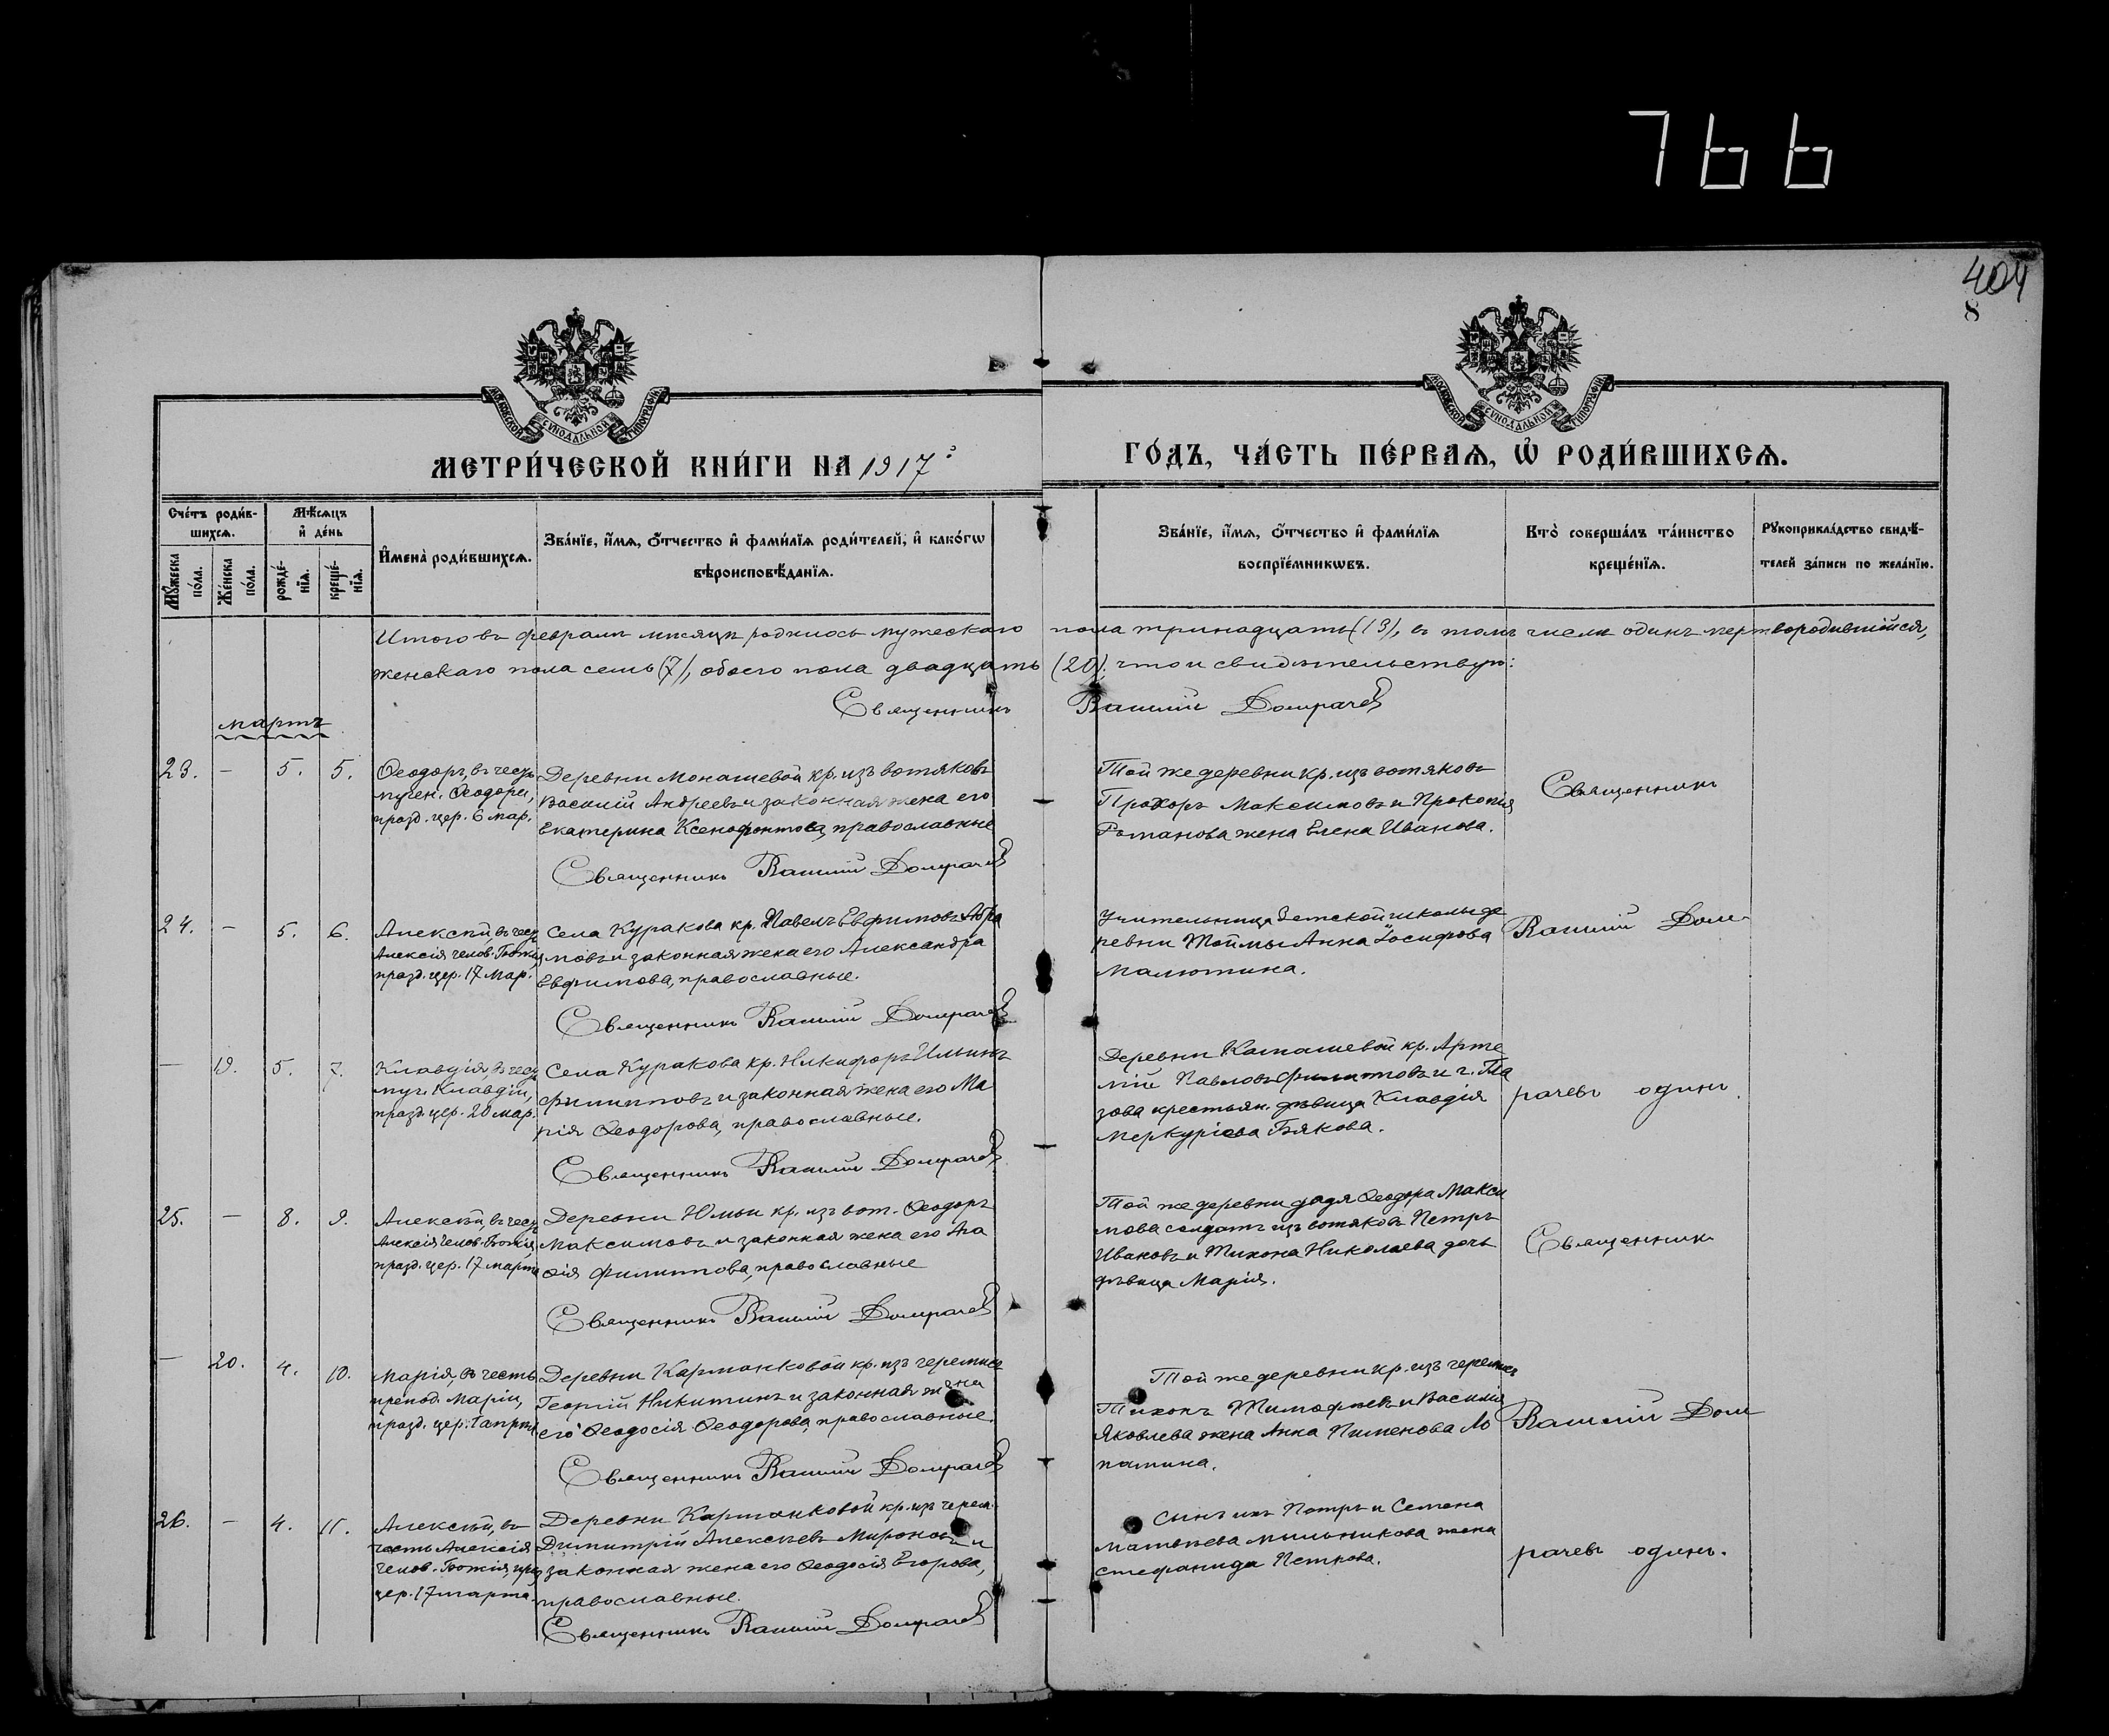 766
404
8
МОСКОВСКОЙ СѴНОДАЛЬНОЙ ТИПОГРАФІИ
МОСКОВСКОЙ СѴНОДАЛЬНОЙ ТИПОГРАФІИ
МЕТРИ́ЧЕСКОЙ КНИ́ГИ НА 1917
ГО́ДЪ, ЧА́СТЬ ПЕ́РВАѦ, Ѡ҆ РОДИ́ВШИХСѦ.
Сче́тъ роди́в-
шихсѧ.
Мꙋ́жеска
по́ла.
Же́нска
по́ла.
Мѣ́сѧцъ
и҆ де́нь
рожде́-
нїѧ.
креще́-
нїѧ.
И҆мена̀ роди́вшихсѧ.
Зва́нїе, и҆́мѧ, ѻ҆́тчество и҆ фами́лїѧ роди́телей, и҆ како́гѡ
вѣроисповѣ́данїѧ.
Зва́нїе, и҆́мѧ, ѻ҆́тчество и҆ фами́лїѧ
воспрїе́мникѡвъ.
Кто̀ соверша́лъ та́инство
креще́нїѧ.
Рꙋкоприкла́дство свидѣ́-
телей за́писи по жела́нїю.
Итого въ февралѣ мѣсяцѣ родилось мужескаго пола тринадцать (13), въ томъ числѣ одинъ мертвородившійся,
женскаго пола семь (7), обоего пола двадцать (20); что и свидѣтельствую:
Священникъ Василій Домрачевъ
мартъ
23. — 5. 5.
Ѳеодоръ, въ честь
мучен. Ѳеодора,
празд. цер. 6 мар.
Деревни Монашевой кр. изъ вотяковъ
Василій Андреевъ и законная жена его
Екатерина Ксенофонтова, православные
Священникъ Василій Домрачевъ
Той же деревни кр. изъ вотяковъ
Прохоръ Максимовъ и Прокопія
Романова жена Елена Иванова.
Священникъ
24. — 5. 6.
Алексѣй, въ честь
Алексія челов. Божія
празд. цер. 17 мар.
Села Куракова кр. Павелъ Евфимовъ Абра
мовъ и законная жена его Александра
Евфимова, православные.
Священникъ Василій Домрачевъ
Учительница Земской школы де
ревни Тоймы Анна Іосифова
Малютина.
Василій Дом
— 19. 5. 7.
Клавдія, въ честь
муч. Клавдіи,
празд. цер. 20 мар.
Села Куракова кр. Никифоръ Ильинъ
Филипповъ и законная жена его Ма
рія Ѳеодорова, православные.
Священникъ Василій Домрачевъ
Деревни Каташевой кр. Арте
мій Павловъ Филипповъ и г. Гла
зова крестьян. дѣвица Клавдія
Меркуріева Бякова.
рачевъ одинъ.
25. — 8. 9.
Алексѣй, въ честь
Алексія Челов. Божія,
празд. цер. 17 марта
Деревни Юмьи кр. изъ вот. Ѳеодоръ
Максимовъ и законная жена его
Филиппова, православные
Священникъ Василій Домрачевъ
Той же деревни дядя Ѳеодора Макси
мова солдатъ изъ вотяковъ Петръ
Ивановъ и Тихона Николаева дочь
дѣвица Марія.
Священникъ
— 20. 4. 10.
Марія, въ честь
препод. Маріи,
празд. цер. 1 апрѣля
Деревни Карманковой кр. изъ черемисъ
Георгій Никитинъ и законная жена
его Ѳеодосія Ѳеодорова, православные.
Священникъ Василій Домрачевъ
Той же деревни кр. изъ черемисъ
Тихонъ Тимофѣевъ и Василія
Яковлева жена Анна Пименова Ло
патина.
Василій Дом
26. — 4. 11.
Алексѣй, въ
честь Алексія
Челов. Божія, праз
цер. 17 марта.
Деревни Карманковой кр. изъ черем.
Димитрій Алексѣевъ Мироновъ и
законная жена его Ѳеодосія Егорова,
православные.
Священникъ Василій Домрачевъ
Сынъ ихъ Петръ и Семена
Матвѣева Мильникова жена
Стефанида Петрова.
рачевъ одинъ.